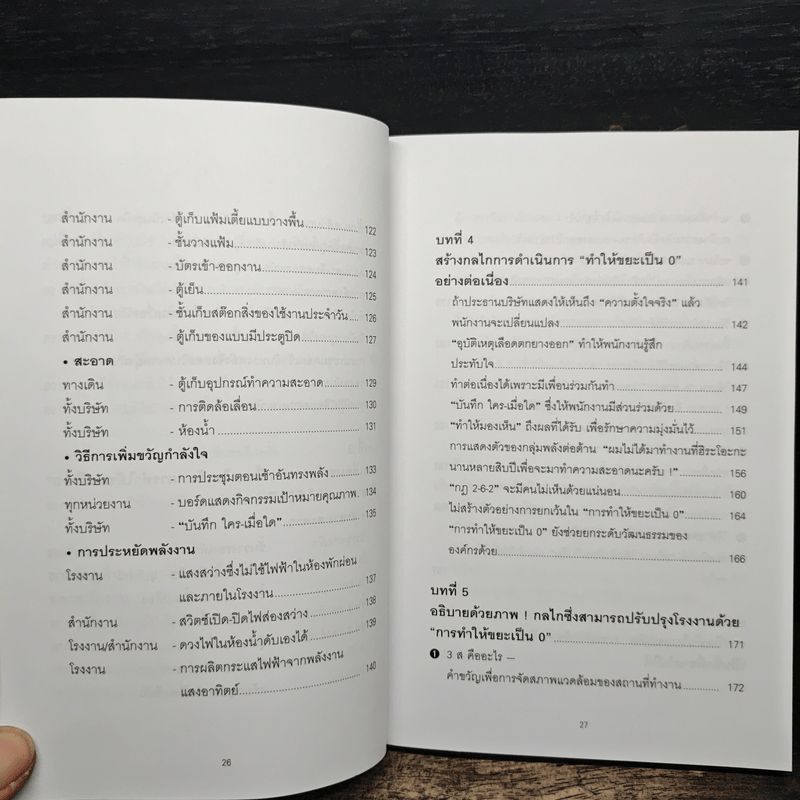 สำนักงาน - ตู้เก็บแฟ้มเตี้ยแบบวางพื้น 122
สำนักงาน - ชั้นวางแฟ้ม 123
สำนักงาน - บัตรเข้า-ออกงาน 124
สำนักงาน - ตู้เย็น 125
สำนักงาน - ชั้นเก็บสต๊อกสิ่งของใช้งานประจำวัน 126
สำนักงาน - ตู้เก็บของแบบมีประตูปิด 127
• สะอาด
ทางเดิน - ตู้เก็บอุปกรณ์ทำความสะอาด 129
ทั้งบริษัท - การติดล้อเลื่อน 130
ทั้งบริษัท - ห้องน้ำ 131
• วิธีการเพิ่มขวัญกำลังใจ
ทั้งบริษัท - การประชุมตอนเช้าอันทรงพลัง 133
ทุกหน่วยงาน - บอร์ดแสดงกิจกรรมเป้าหมายคุณภาพ 134
ทั้งบริษัท - “บันทึก ใคร-เมื่อใด” 135
• การประหยัดพลังงาน
โรงงาน - แสงสว่างซึ่งไม่ใช้ไฟฟ้าในห้องพักผ่อน
และภายในโรงงาน 137
สำนักงาน - สวิตซ์เปิด-ปิดไฟส่องสว่าง 138
โรงงาน/สำนักงาน - ดวงไฟในห้องน้ำดับเองได้ 139
โรงงาน - การผลิตกระแสไฟฟ้าจากพลังงาน
แสงอาทิตย์ 140
26
บทที่ 4
สร้างกลไกการดำเนินการ “ทำให้ขยะเป็น 0”
อย่างต่อเนื่อง 141
ถ้าประธานบริษัทแสดงให้เห็นถึง “ความตั้งใจจริง” แล้ว
พนักงานจะเปลี่ยนแปลง 142
“อุบัติเหตุเลือดตกยางออก” ทำให้พนักงานรู้สึก
ประทับใจ 144
ทำต่อเนื่องได้เพราะมีเพื่อนร่วมกันทำ 147
“บันทึก ใคร-เมื่อใด” ซึ่งให้พนักงานมีส่วนร่วมด้วย 149
“ทำให้มองเห็น” ถึงผลที่ได้รับ เพื่อรักษาความมุ่งมั่นไว้ 151
การแสดงตัวของกลุ่มพลังต่อต้าน “ผมไม่ได้มาทำงานที่ฮิระโอะกะ
นานหลายสิบปีเพื่อจะมาทำความสะอาดนะครับ !” 156
“กฎ 2-6-2” จะมีคนไม่เห็นด้วยแน่นอน 160
ไม่สร้างตัวอย่างการยกเว้นใน “การทำให้ขยะเป็น 0” 164
“การทำให้ขยะเป็น 0” ยังช่วยยกระดับวัฒนธรรมของ
องค์กรด้วย 166
บทที่ 5
อธิบายด้วยภาพ ! กลไกซึ่งสามารถปรับปรุงโรงงานด้วย
“การทำให้ขยะเป็น 0” 171
❶ 3 ส คืออะไร —
คำขวัญเพื่อการจัดสภาพแวดล้อมของสถานที่ทำงาน 172
27